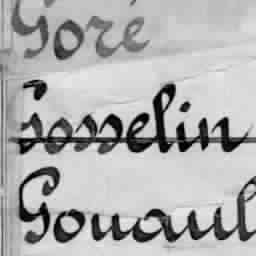 Goré
Gosselin
Gouaul